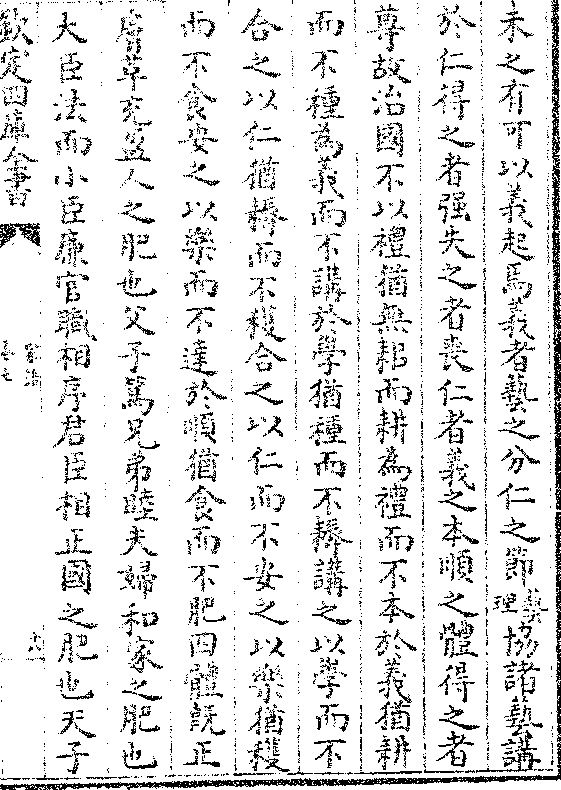 未之有可以義起焉義者藝之分仁之節藝理協諸藝講
於仁得之者强失之者喪仁者義之本順之體得之者
尊故治國不以禮猶無耜而耕為禮而不本於義猶耕
而不種為義而不講於學猶種而不耨講之以學而不
合之以仁猶耨而不穫合之以仁而不安之以樂猶穫
而不食安之以樂而不達於順猶食而不肥四體既正
膚革充盈人之肥也父子篤兄弟睦夫婦和家之肥也
大臣法而小臣廉官職相序君臣相正國之肥也天子
欽定四庫全書